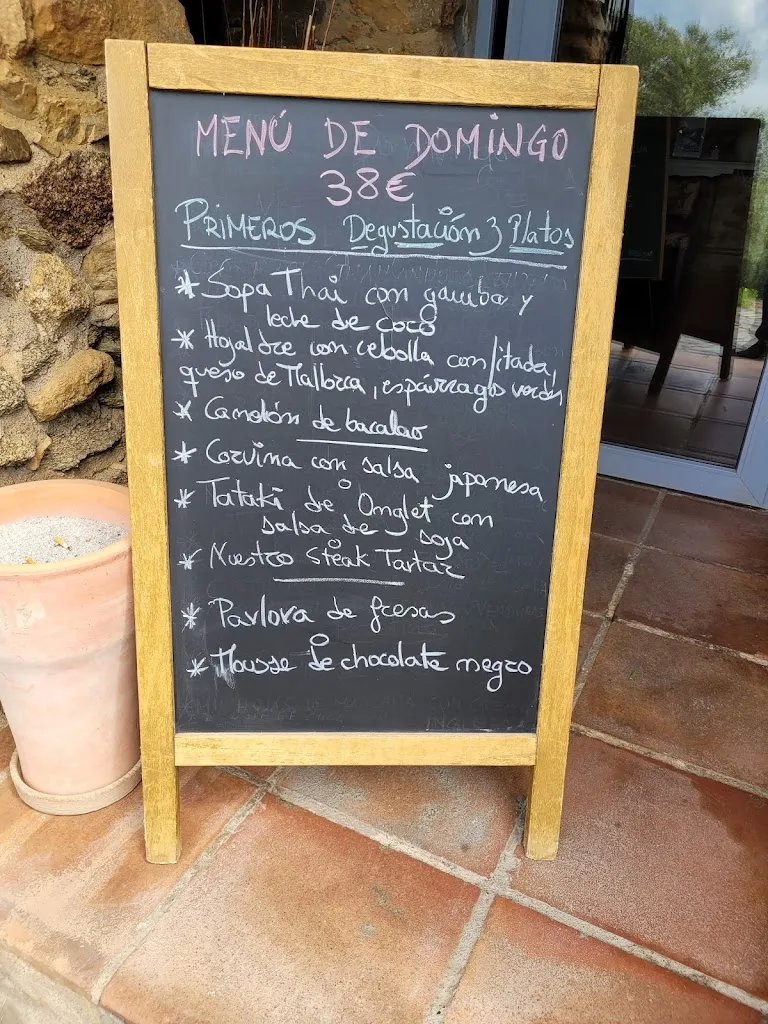 MENÚ DE DOMINGO
38€
PRIMEROS Degustación 3 Platos
* Sopa Thai con gamba y
leche de coco
* Hojaldre con cebolla confitada,
queso de Mallorca, espárragos verdes
* Canelón de bacalao
* Corvina con salsa japonesa
* Tataki de Onglet con
salsa de soja
* Nuestro Steak Tartar
* Pavlova de fresas
* Mousse de chocolate negro